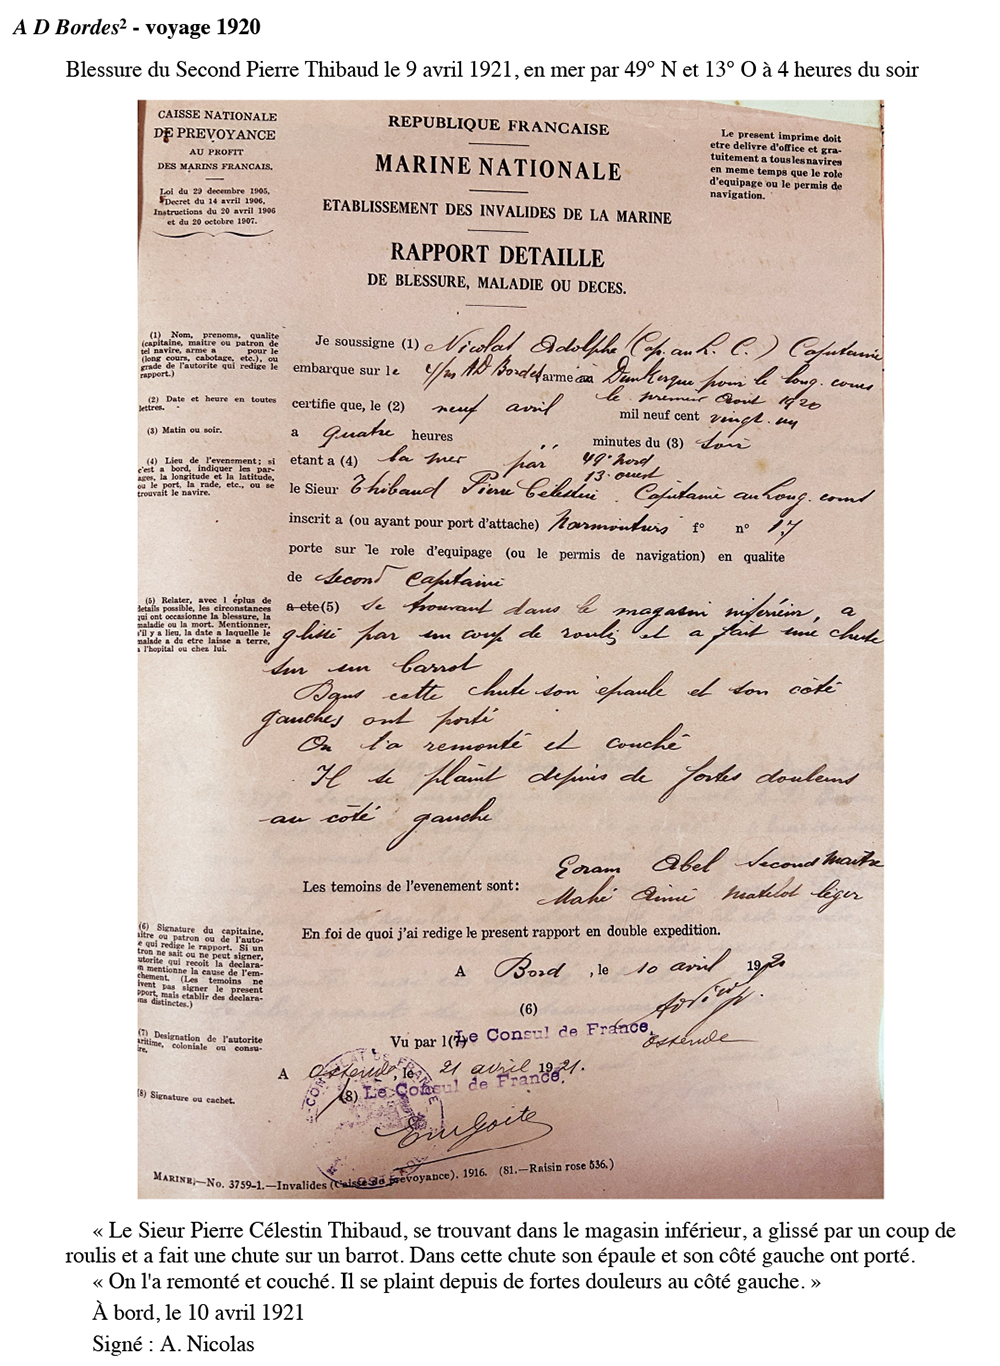 A D Bordes² - voyage 1920
Blessure du Second Pierre Thibaud le 9 avril 1921, en mer par 49° N et 13° O à 4 heures du soir
CAISSE NATIONALE
DE PREVOYANCE
AU PROFIT
DES MARINS FRANCAIS.
Loi du 29 decembre 1905,
Decret du 14 avril 1906,
Instructions du 20 avril 1906
et du 20 octobre 1907.
REPUBLIQUE FRANCAISE
MARINE NATIONALE
ETABLISSEMENT DES INVALIDES DE LA MARINE
RAPPORT DETAILLE
DE BLESSURE, MALADIE OU DECES.
Le present imprime doit
etre delivre d'office et gra-
tuitement a tous les navires
en meme temps que le role
d'equipage ou le permis de
navigation.
(1) Nom, prenoms, qualite
(capitaine, maitre ou patron de
tel navire, arme a pour le
(long cours, cabotage, etc.), ou
grade de l'autorite qui redige le
rapport.)
(2) Date et heure en toutes
lettres.
(3) Matin ou soir.
(4) Lieu de l'evenement; si
c'est a bord, indiquer les par-
ages, la longitude et la latitude,
ou le port, la rade, etc., ou se
trouvait le navire.
Je soussigne (1) Nicolas Adolphe (Cap. au L. C.) Capitaine
embarque sur le 4/m AD Bordes arme a Dunkerque pour le long-cours
le premier Aout 1920
certifie que, le (2) neuf avril mil neuf cent vingt un
a quatre heures minutes du (3) soir
etant a (4) la mer par 49° Nord
13° ouest
le Sieur Thibaud Pierre Célestin Capitaine au long-cours
inscrit a (ou ayant pour port d'attache) Noirmoutiers f° n° 17
porte sur le role d'equipage (ou le permis de navigation) en qualite
de second Capitaine
(5) Relater, avec l eplus de
details possible, les circonstances
qui ont occasionne la blessure, la
maladie ou la mort. Mentionner,
s'il y a lieu, la date a laquelle le
malade a du etre laisse a terre,
a l'hopital ou chez lui.
a ete (5) se trouvant dans le magasin inférieur, a
glissé par un coup de roulis et a fait une chute
sur un barrot
Dans cette chute son épaule et son côté
gauches ont porté
On l'a remonté et couché
Il se plaint depuis de fortes douleurs
au côté gauche
Les temoins de l'evenement sont: Goram Abel Second Maitre
Mahé Aimé matelot léger
(6) Signature du capitaine,
aitre ou patron ou de l'auto-
e qui redige le rapport. Si un
tron ne sait ou ne peut signer,
utorite qui recoit la declara-
n mentionne la cause de l'em-
chement. (Les temoins ne
ivent pas signer le present
pport, mais etablir des declara-
ns distinctes.)
En foi de quoi j'ai redige le present rapport en double expedition.
A Bord, le 10 avril 1921
(6)
(7) Designation de l'autorite
aritime, coloniale ou consu-
ire.
Vu par l(7) Le Consul de France,
Ostende
A Ostende, le 21 avril 1921.
(8) Signature ou cachet.
(8) Le Consul de France,
CONSULAT DE FRANCE
OSTENDE
MARINE,—No. 3759-1.—Invalides (Caisse de prevoyance). 1916. (81.—Raisin rose 536.)
« Le Sieur Pierre Célestin Thibaud, se trouvant dans le magasin inférieur, a glissé par un coup de
roulis et a fait une chute sur un barrot. Dans cette chute son épaule et son côté gauche ont porté.
« On l'a remonté et couché. Il se plaint depuis de fortes douleurs au côté gauche. »
À bord, le 10 avril 1921
Signé : A. Nicolas